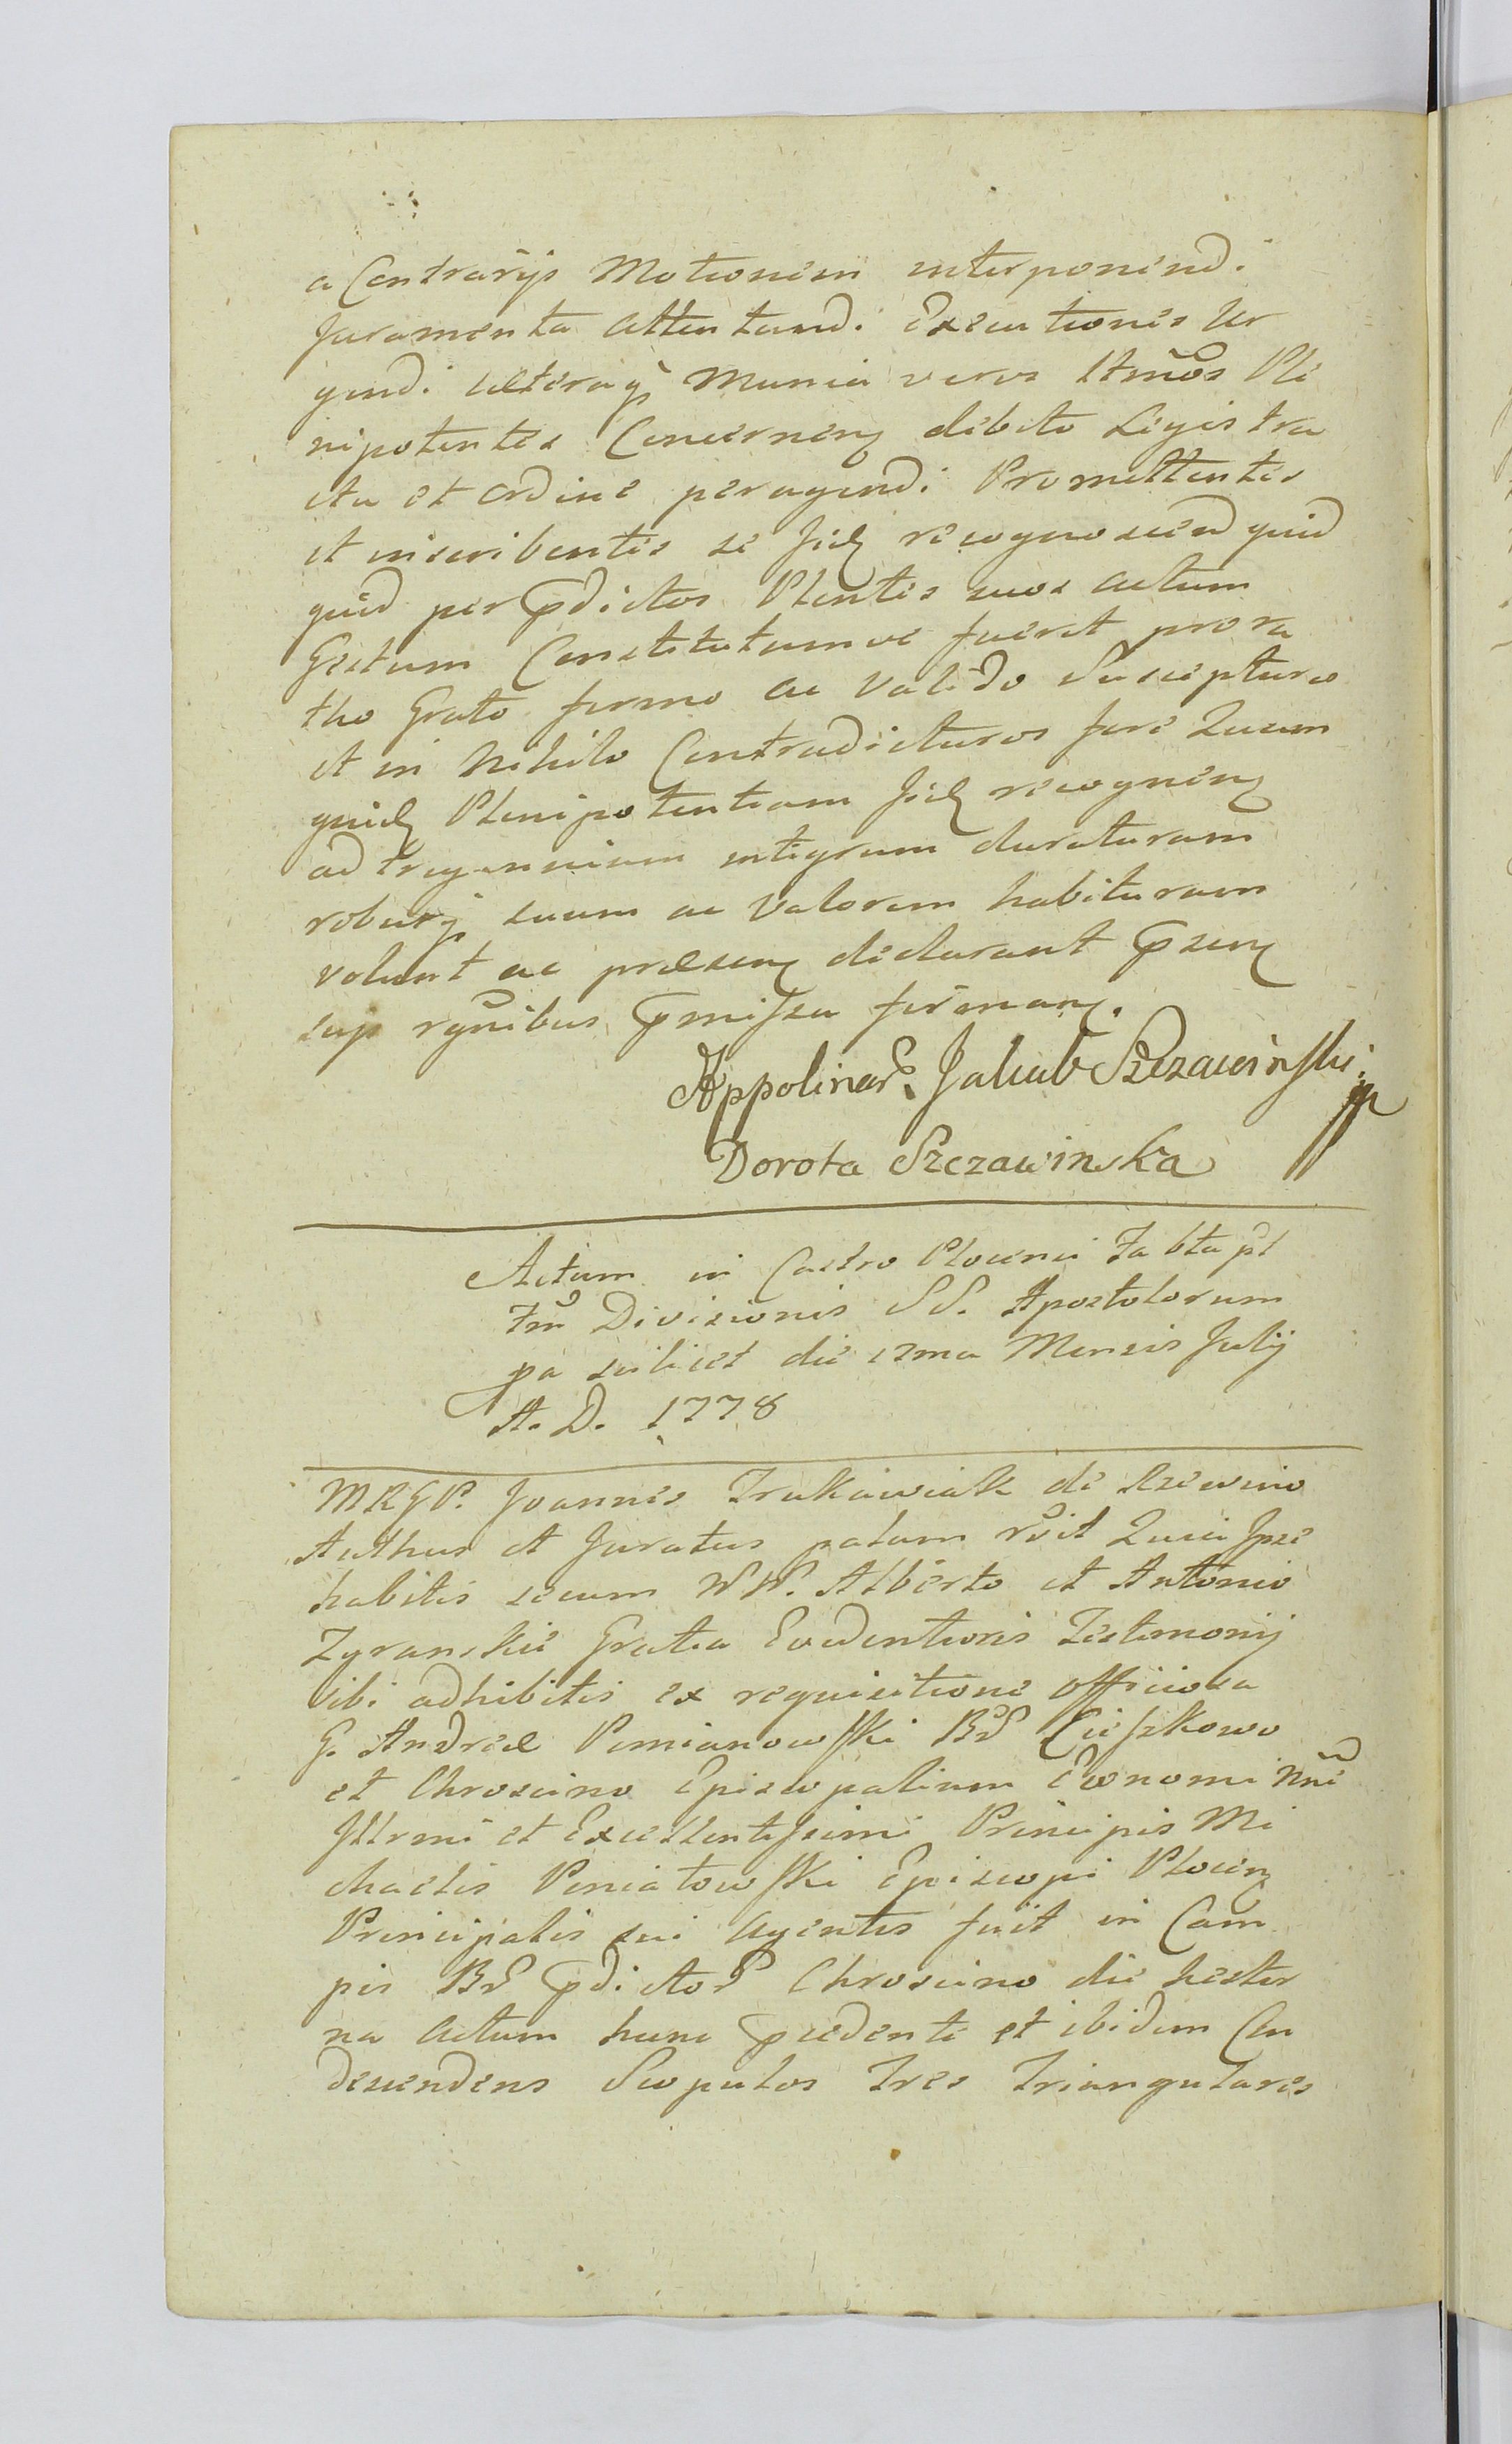 a Contrarijs Motionem interponendi
Juramenta attentandi Executiones Ur
gendi caeteraq Munia veros Ltmos Ple
nipotentes Concernen debito Legis tra
ctu et ordine peragendi Promittentes
et inscribentes se Jid recognoscen quid
quid per pdictos Plentes suos actum
Gestum Constitutumve fuerit pro ra
tho Grato firmo ac Valido Suscepturos
et in Nihilo Contradicturos fore Quam
quid Plenipotentiam Jid recognen
ad tregennium integrum duraturam
roburq suum ac Valorem habituram
volunt ac praesen declarant psen
sup rgnibus pmissa firman.
Appolinar. Jakub Szczawinski
Dorota Szczawinska
Actum in Castro Plocensi Sabba pt
Fm Divisionis SS. Apostolorum
pa scilicet die 18ma Mensis Julij
A. D. 1778
MRGP. Joannes Trukawiak de Szewino
Authus et Juratus palam rvit Quia Ipse
habitis secum NN. Alberto et Antonio
Zyranskie Gratia Evidentioris Testimonij
sibi adhibitis ex requisitione officiosa
G. Andreae Pomianowski Br Cieszkowo
et Chroscino Episcopalium Economi Nni
Illrmi et Excellentissimi Principis Mi
chaelis Poniatowski Episcopi Plocen
Principalis sui Agentis fuit in Cam
pis Br pdictor Chroscino die hester
na actum hunc pcedente et ibidem Con
descendens Scopulos Tres Triangulares